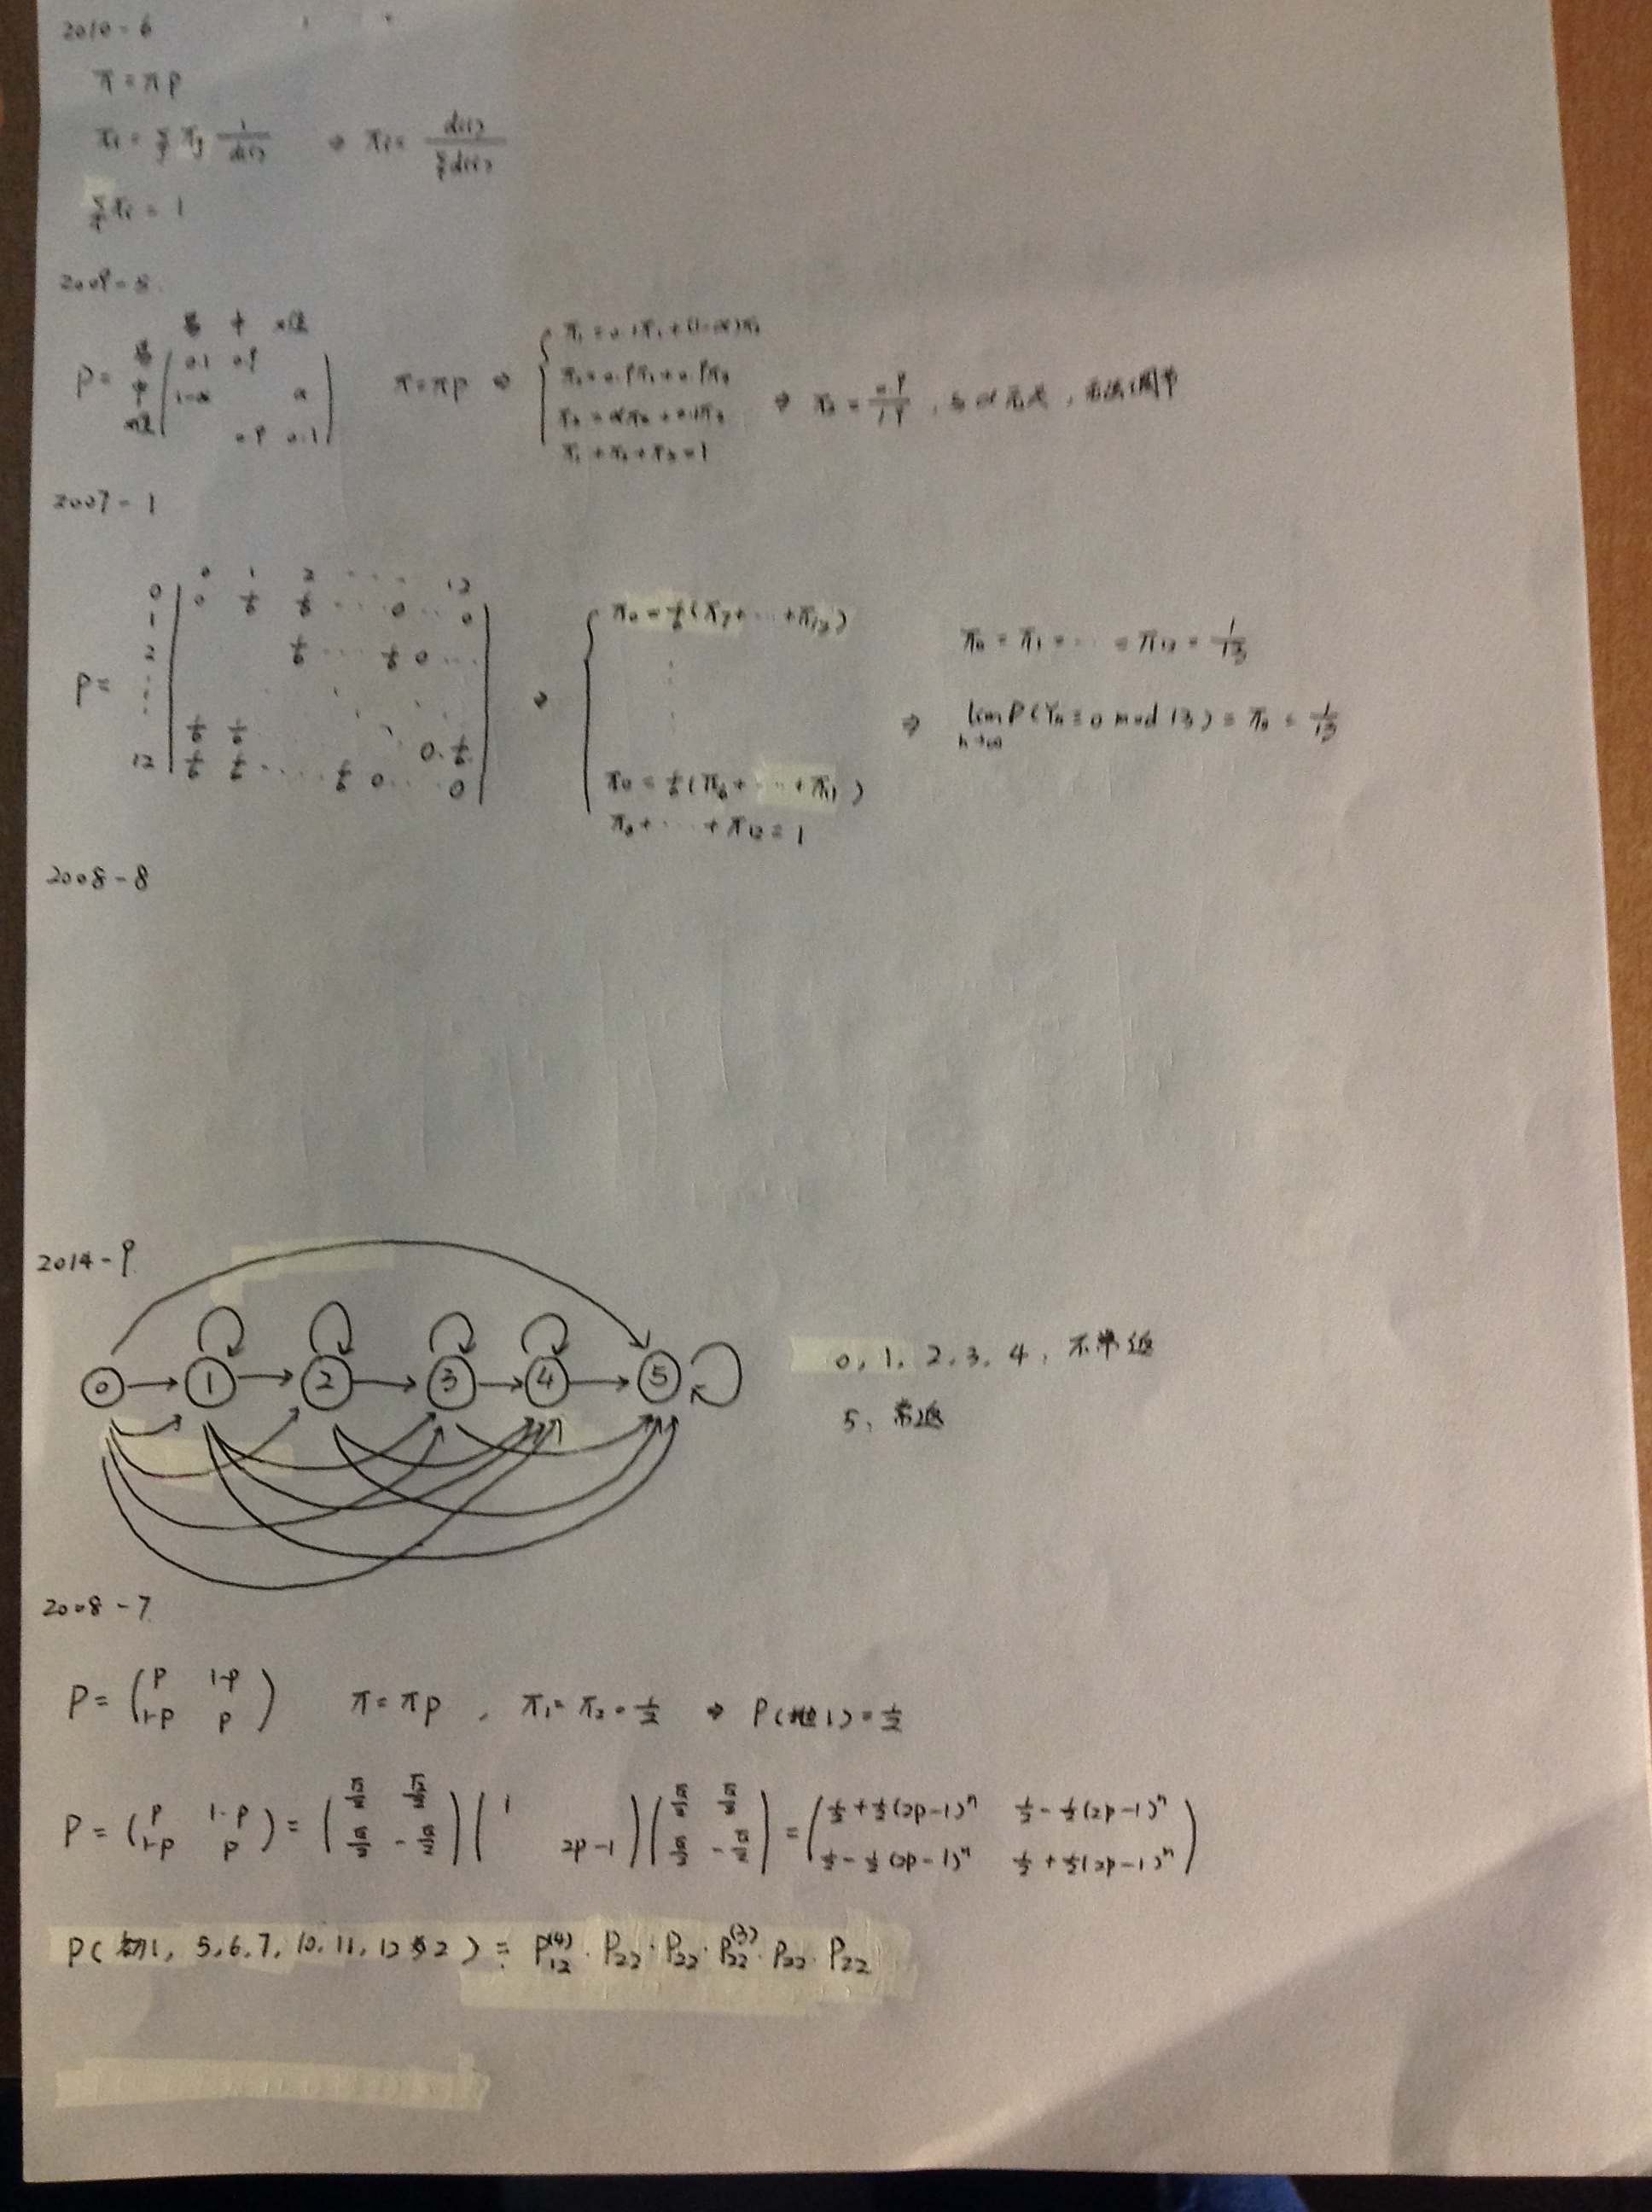 2010-6
π=πp
πi = Σj πj 1/d(i) ⇒ πi = d(i)/Σi d(i)
Σi πi = 1
2009-5
易 中 难
P= 易 0.1 0.9
中 1-α α
难 0.9 0.1
π=πp ⇒
π1=0.1π1+(1-α)π2
π2=0.9π1+0.9π3
π3=απ2+0.1π3
π1+π2+π3=1
⇒ π2 = 0.9/1.9, 与α无关, 无法调节
2007-1
0 1 2 ··· 12
0 0 1/6 1/6 ··· 0 ·· 0
1
2 1/6 ··· 1/6 0 ···
P=
1/6 1/6 0 1/6
12 1/6 1/6 ···· 1/6 0 ··· 0
⇒
π0 = 1/6(π7+···+π12)
π0 = 1/6(π6+···+π11)
π0+···+π12=1
π0=π1=···=π12=1/13
⇒ lim n→∞ P(Yn≡0 mod 13)=π0=1/13
2008-8
2014-9
0 1 2 3 4 5
0, 1, 2, 3, 4, 不常返
5, 常返
2008-7
P= (p 1-p
1-p p) π=πp, π1=π2=1/2 ⇒ P( 1)=1/2
P= (p 1-p
1-p p) = (√2/2 √2/2
√2/2 -√2/2) (1
2p-1) (√2/2 √2/2
√2/2 -√2/2) = (1/2+1/2(2p-1)^n 1/2-1/2(2p-1)^n
1/2-1/2(2p-1)^n 1/2+1/2(2p-1)^n)
P(初1, 5,6,7,10,11,12为2) = P12^(4)·P22·P22·P22^(3)·P22·P22